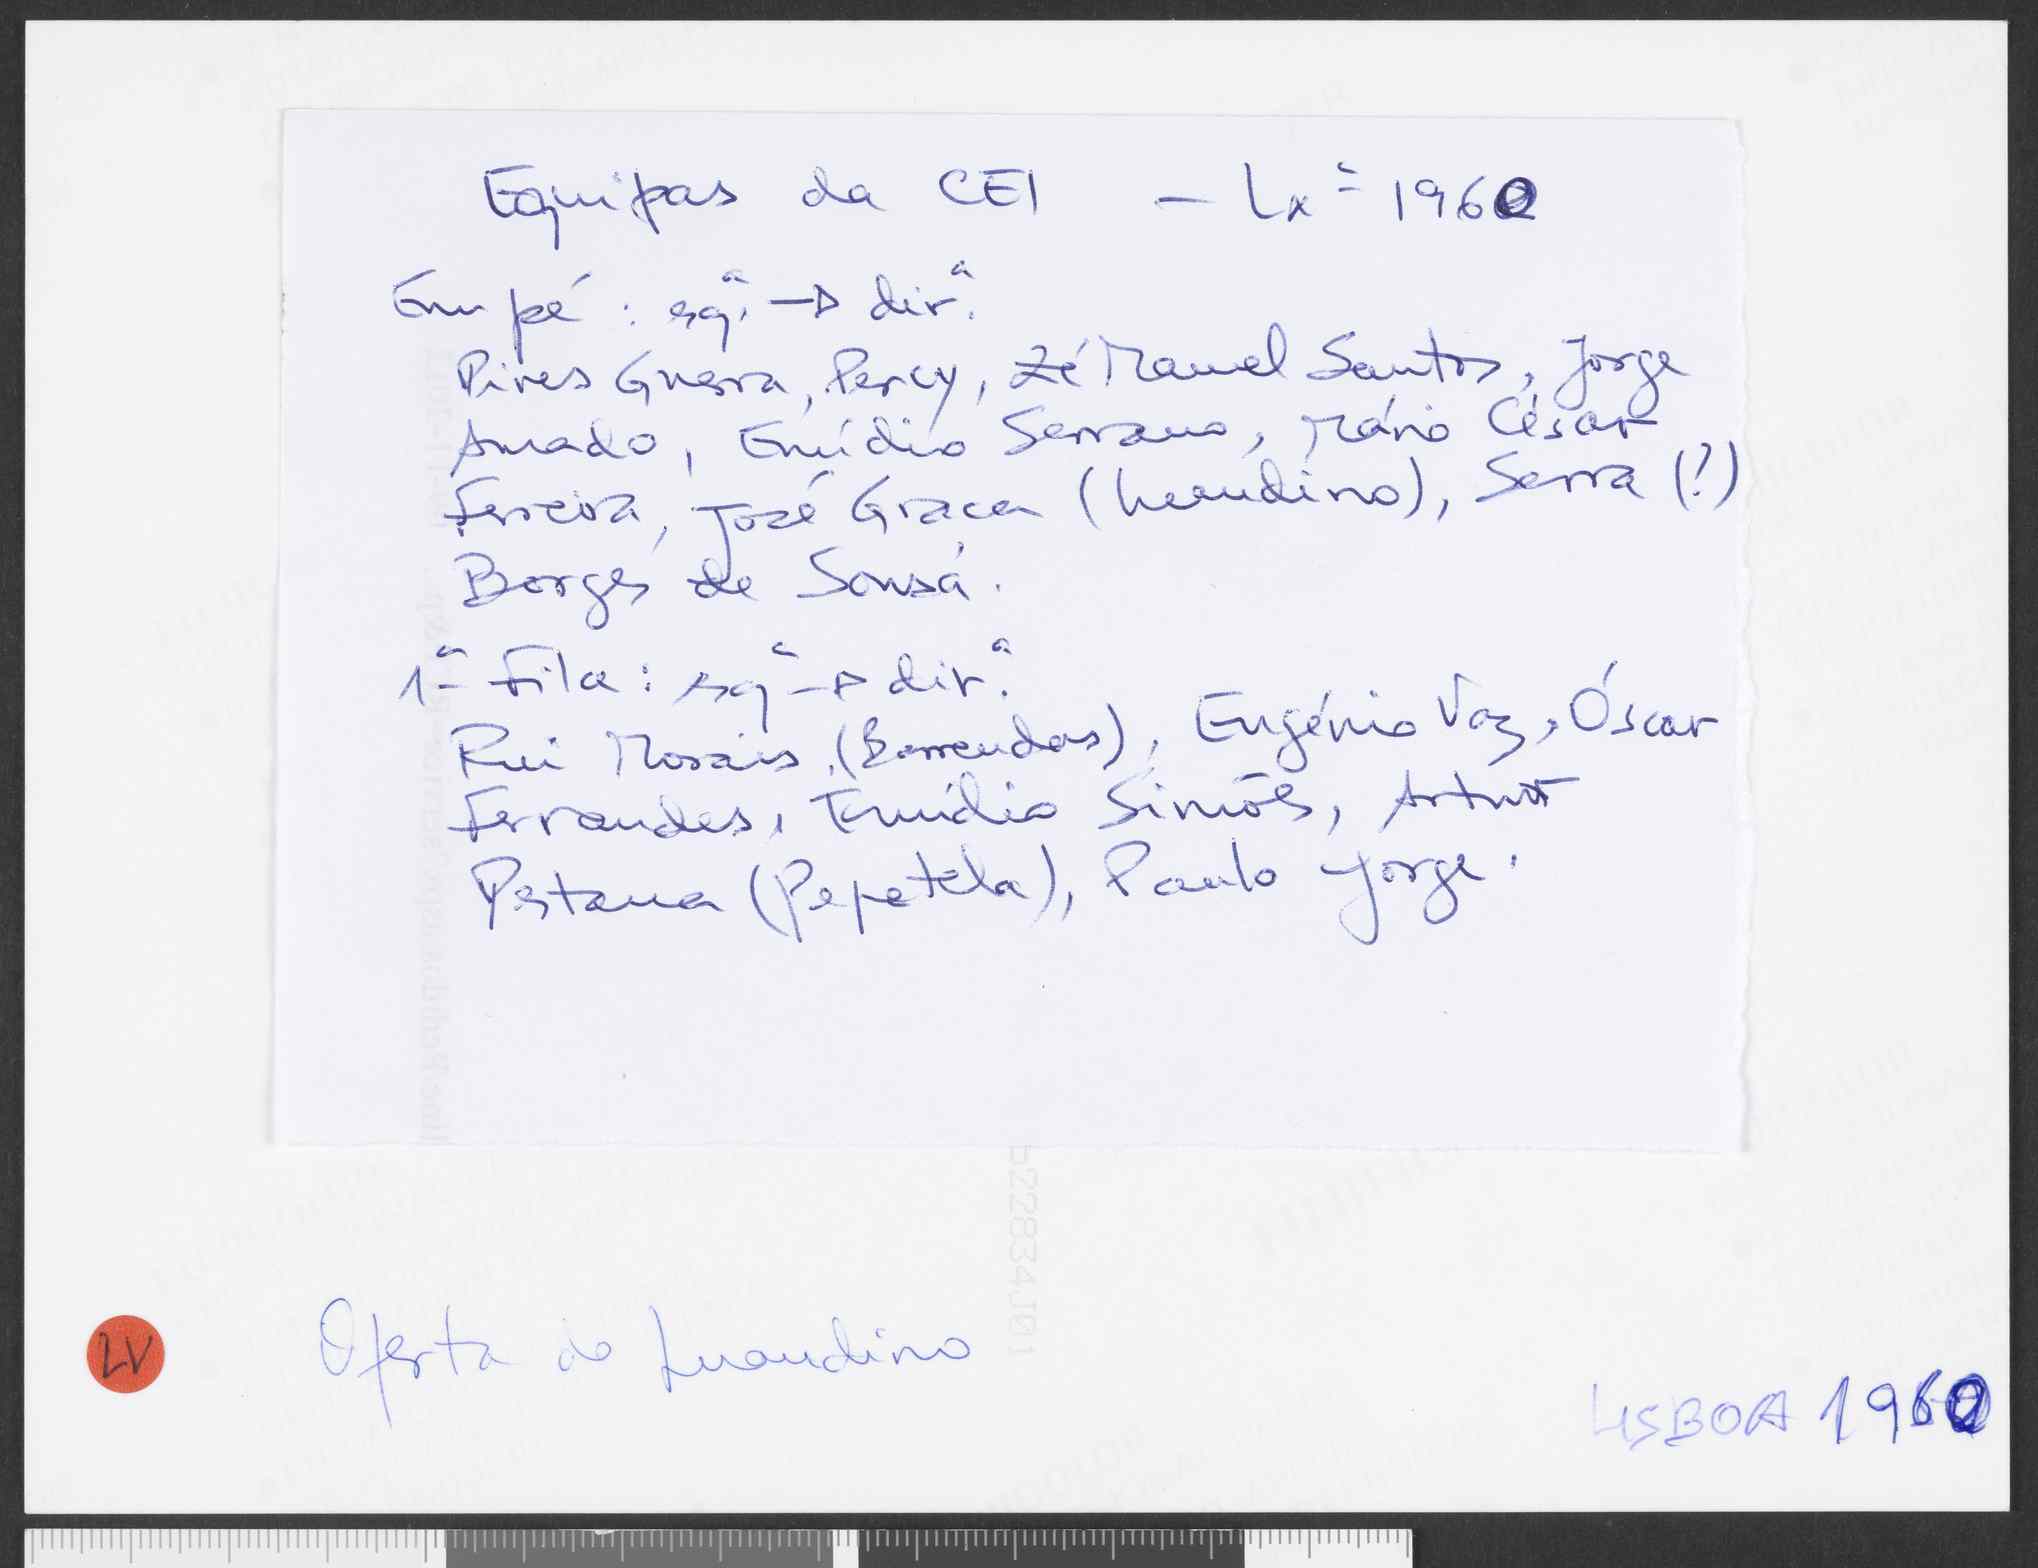 Equipas da CEI - Lxª 1960
Em pé: esq.ª → dir.ª
Pires Guerra, Percy, Zé Manuel Santos, Jorge
Amado, Emídio Serrano, Mário César
Ferreira, José Graça (Luandino), Serra (?)
Borges de Sousa.
1ª Fila: esqª → dir.ª
Rui Morais, (Barrendas), Eugénio Vaz, Óscar
Fernandes, Emídio Simões, Artur
Pestana (Pepetela), Paulo Jorge.
622834J01
LV
Oferta do Luandino
LISBOA 1960